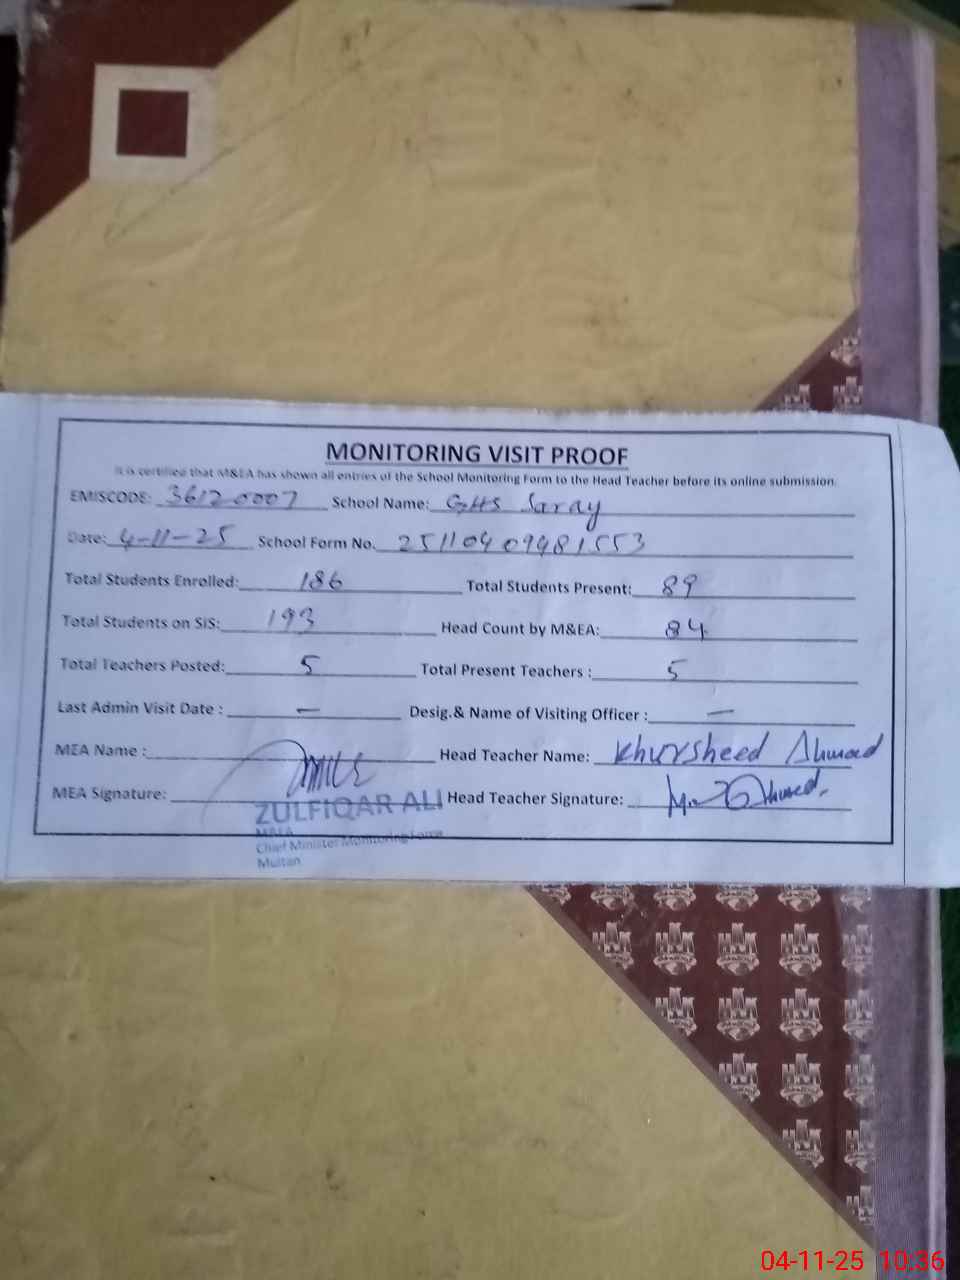 MONITORING VISIT PROOF
It is certified that M&EA has shown all entries of the School Monitoring Form to the Head Teacher before its online submission.
EMISCODE: 36120007 School Name: GHS Saray
Date: 4-11-25 School Form No. 25110409481553
Total Students Enrolled: 186 Total Students Present: 89
Total Students on SIS: 193 Head Count by M&EA: 84
Total Teachers Posted: 5 Total Present Teachers : 5
Last Admin Visit Date : — Desig.& Name of Visiting Officer : —
MEA Name : Head Teacher Name: Khursheed Ahmad
MEA Signature: Head Teacher Signature:
ZULFIQAR ALI
M&EA
Chief Minister Monitoring Force
Multan
04-11-25 10:36